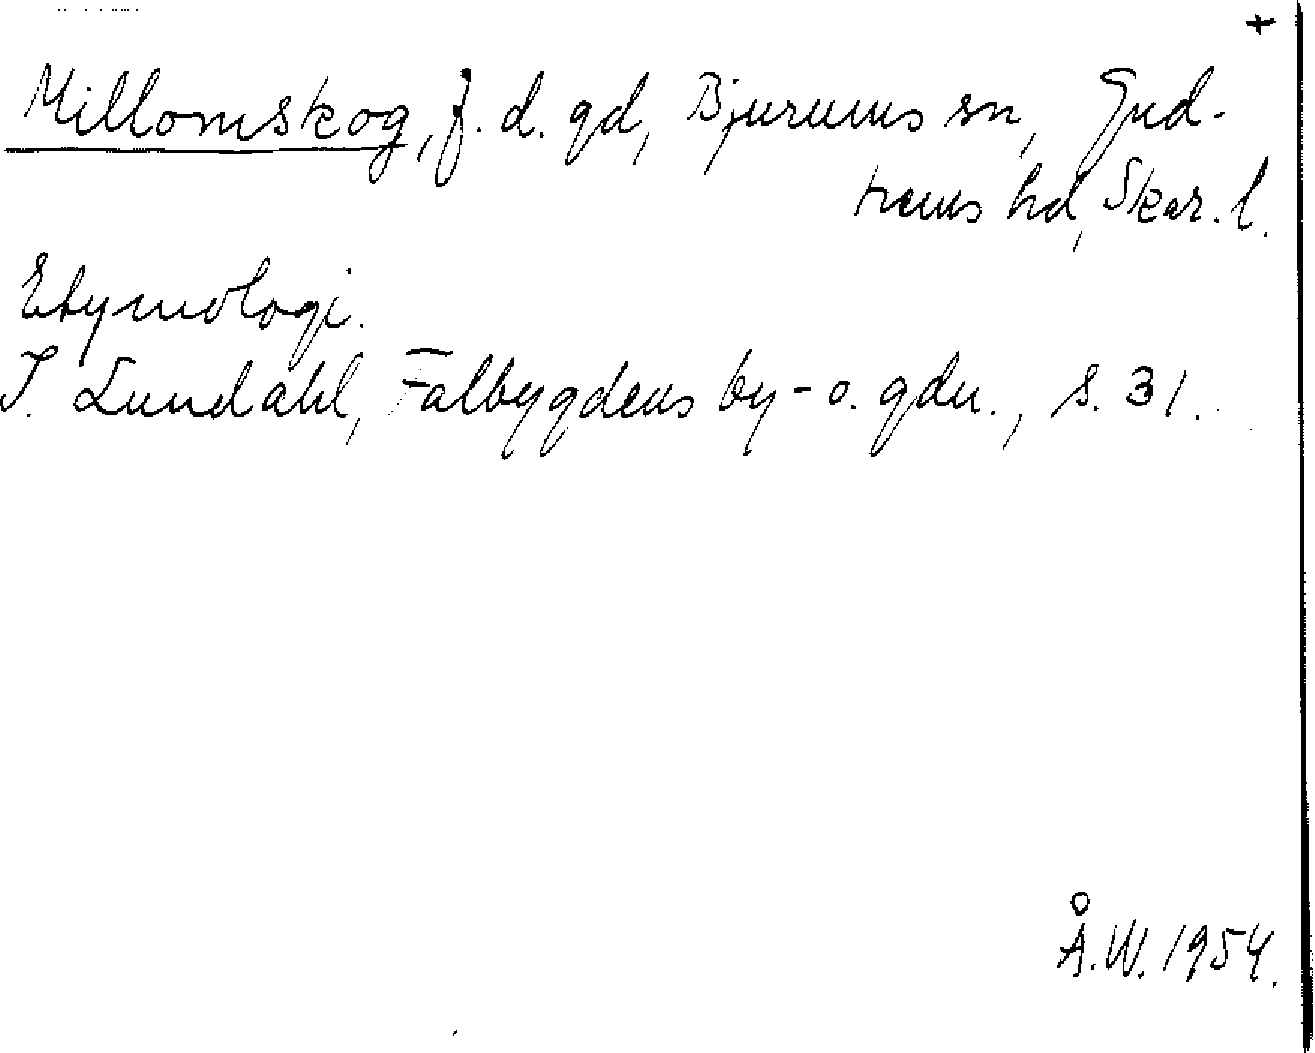 +
Millomskog, f. d. gd, Bjurums sn, Gud-
hems hd, Skar. l.
Etymologi.
I. Lundahl, Falbygdens by- o. gdn., s. 31.
Å.W. 1954.